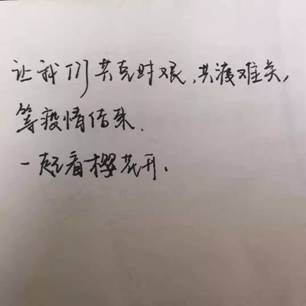 让我们共克时艰,共渡难关,
等疫情结束.
一起看樱花开.